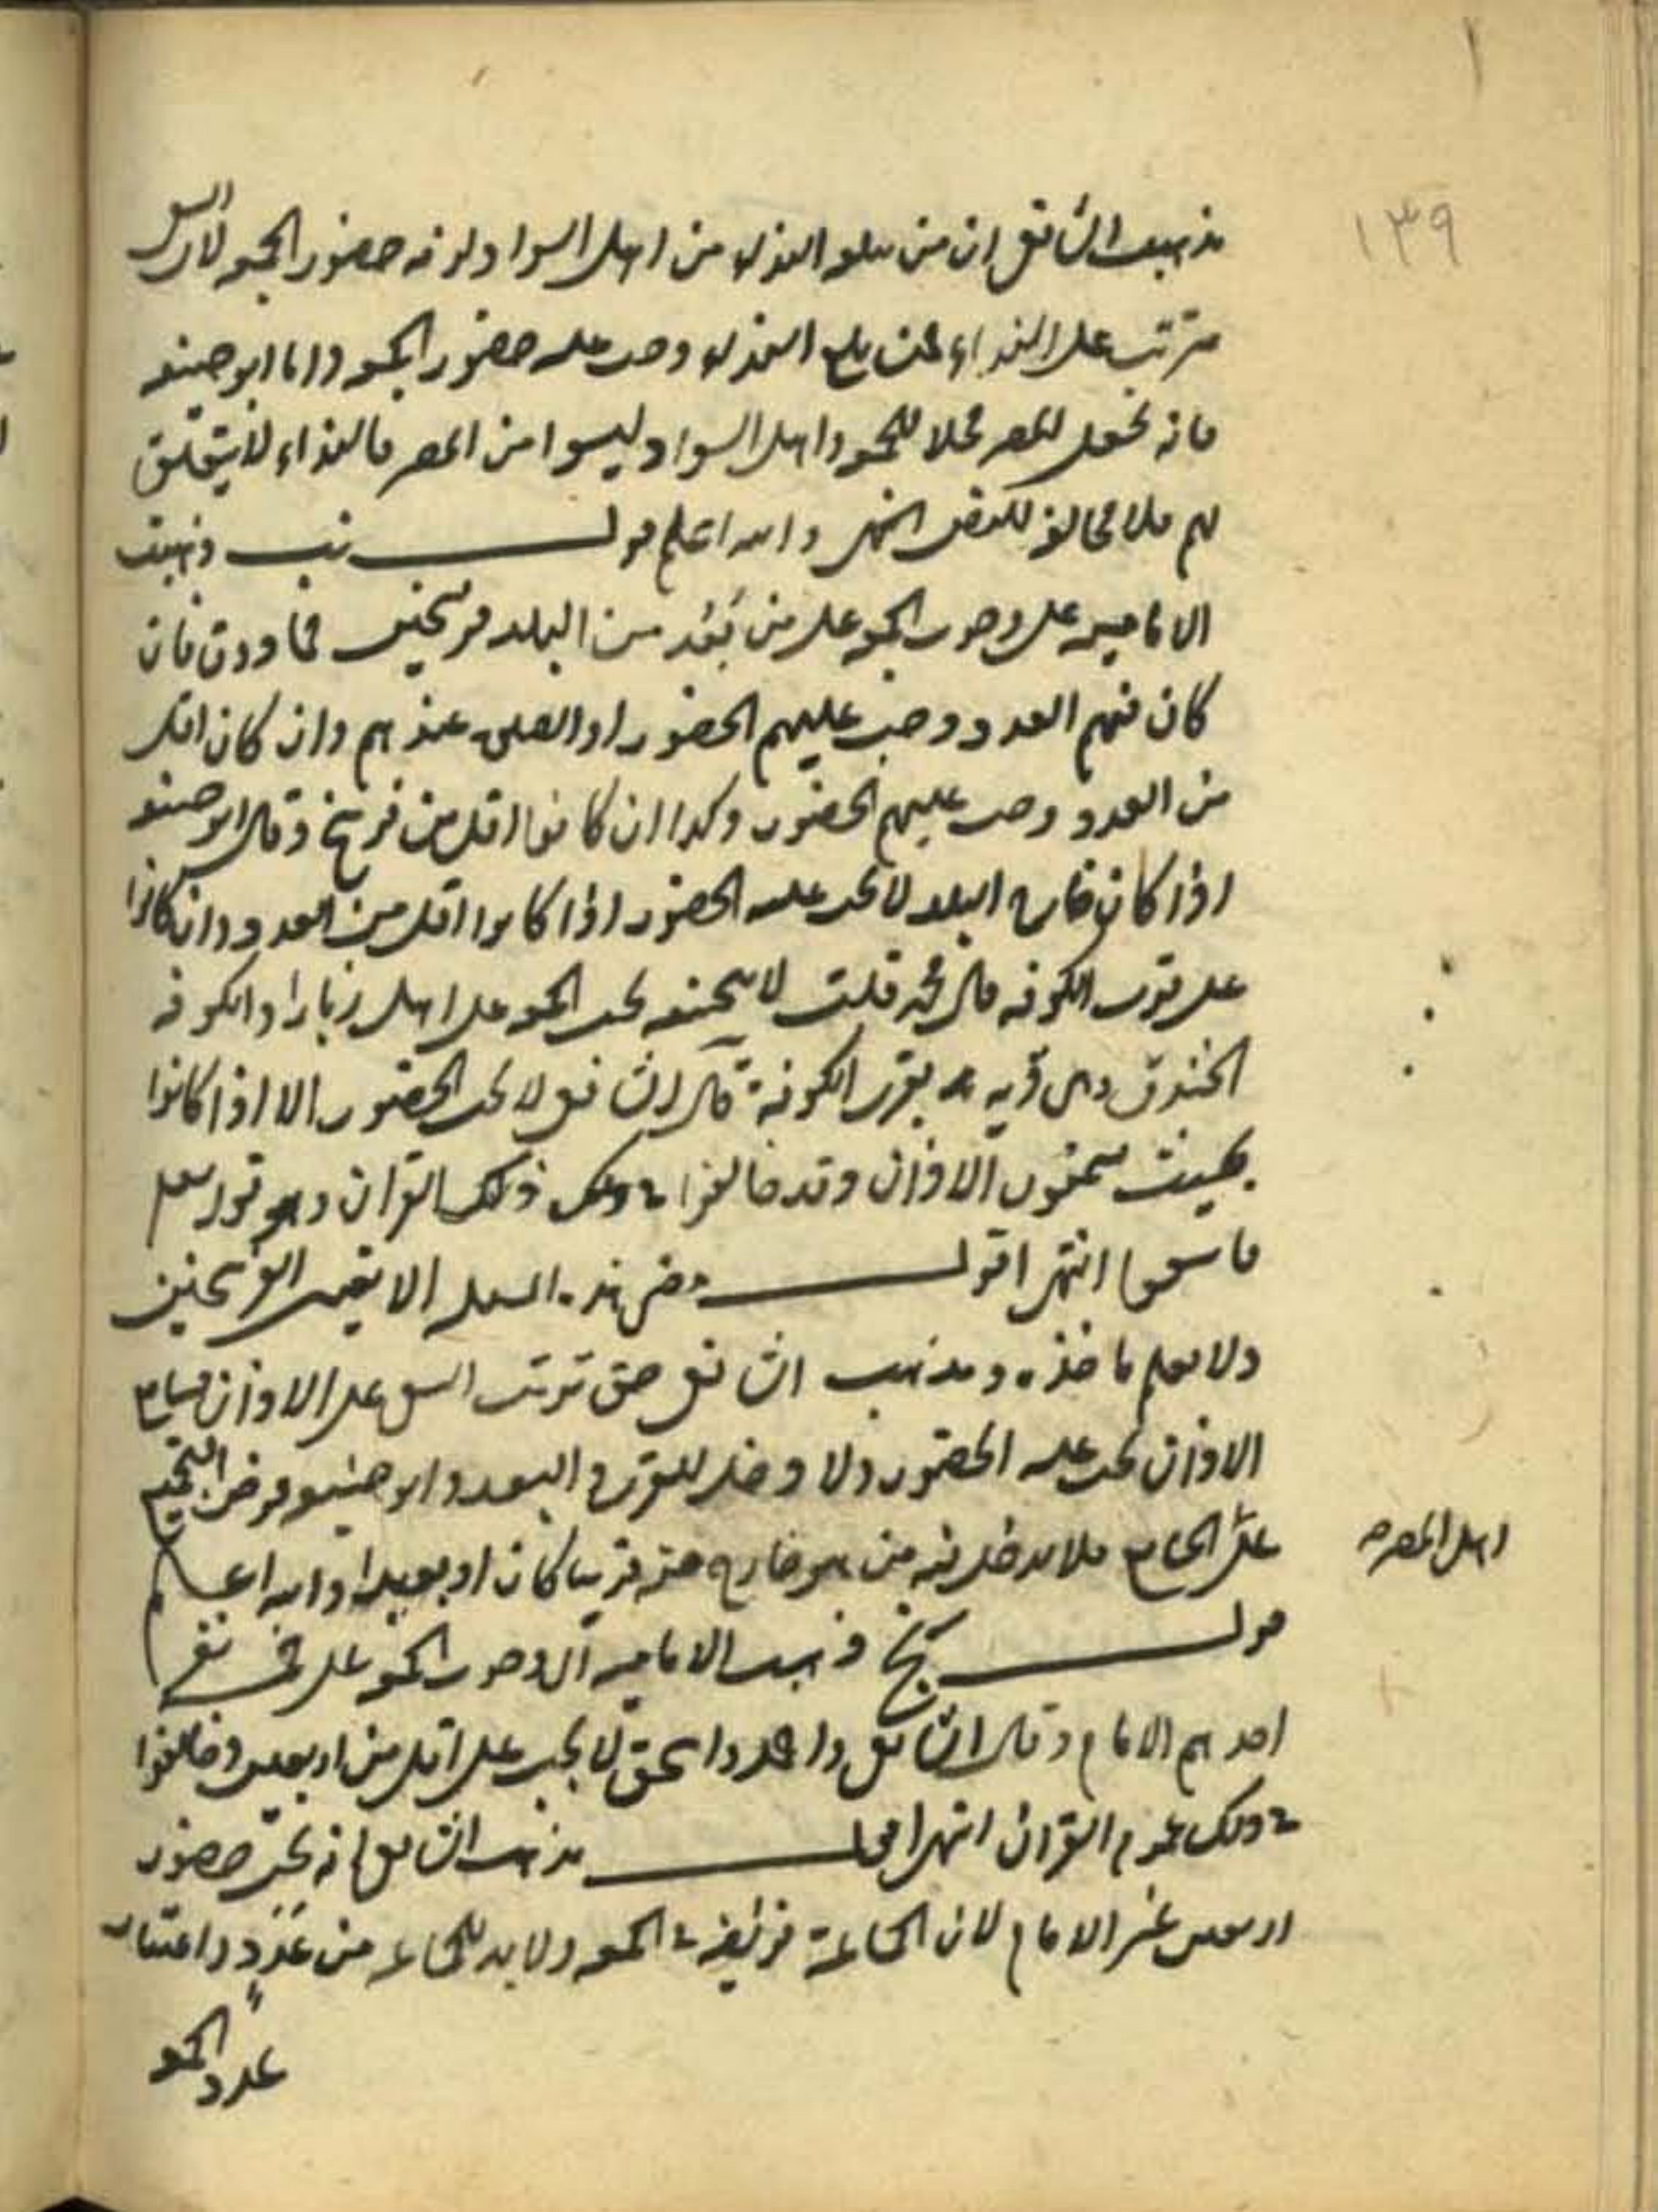 ١٣٩
مذهب الشافعي ان من سمع النداء من اهل السواد لزمه حضور الجمعه لان السعى
مترتب على النداء فمن بلغ النداء وجب عليه حضور الجمعه واما ابو حنيفه
فانه يجعل المصر محلا للجمعه واهل السواد ليسوا من المصر فالنداء لا يتعلق
بهم فلا مخالفه للنص انتهى والله اعلم قولـــــه يب ذهبت
الاماميه على وجوب الجمعه على من بَعُد من البلد فرسخين فما دون فان
كان فيهم العدد وجب عليهم الحضور او الصلوة عندهم وان كان اقل
من العدد وجب عليهم الحضور وكذا ان كانوا اقل من فرسخ وقال ابو حنيفه
اذا كان خارج البلد لا يجب عليه الحضور اذا كانوا اقل من العدد وان كانوا
على قرب الكوفه قال محمد قلت لابي حنيفه يجب الجمعه على اهل زبارا والكوفه
الخندق وهى قريه بقرب الكوفة قال الشافعي لا يجب الحضور الا اذا كانوا
بحيث يسمعون الاذان وقد خالفوا في ذلك القران وهو قوله تعالى
فاسعوا انتهى اقولـــــه هذه المسئله الا بقيد الفرسخين
ولا يعلم ماخذه ومذهب الشافعي حق ترتب السعى على الاذان فسامع
الاذان يجب عليه الحضور ولا دخل للقرب والبعد وابو حنيفه فرض الجمعه
على الجامع فلا يدخل فيه من هو خارج عنه قريبا كان او بعيدا والله اعلم
اهل المصر
قولـــــه يج ذهبت الاماميه الى وجوب الجمعه على خمسة نفر
احدهم الامام وقال الشافعي واحمد واسحق لا يجب على اقل من اربعين وخالفوا
في ذلك عموم القران انتهى اقولـــــ مذهب الشافعي انه يجب حضور
اربعين غير الامام لان الجماعة فريضة في الجمعه ولا بد للجماعه من عَدَدٍ واعتبار
عدد الجمعه